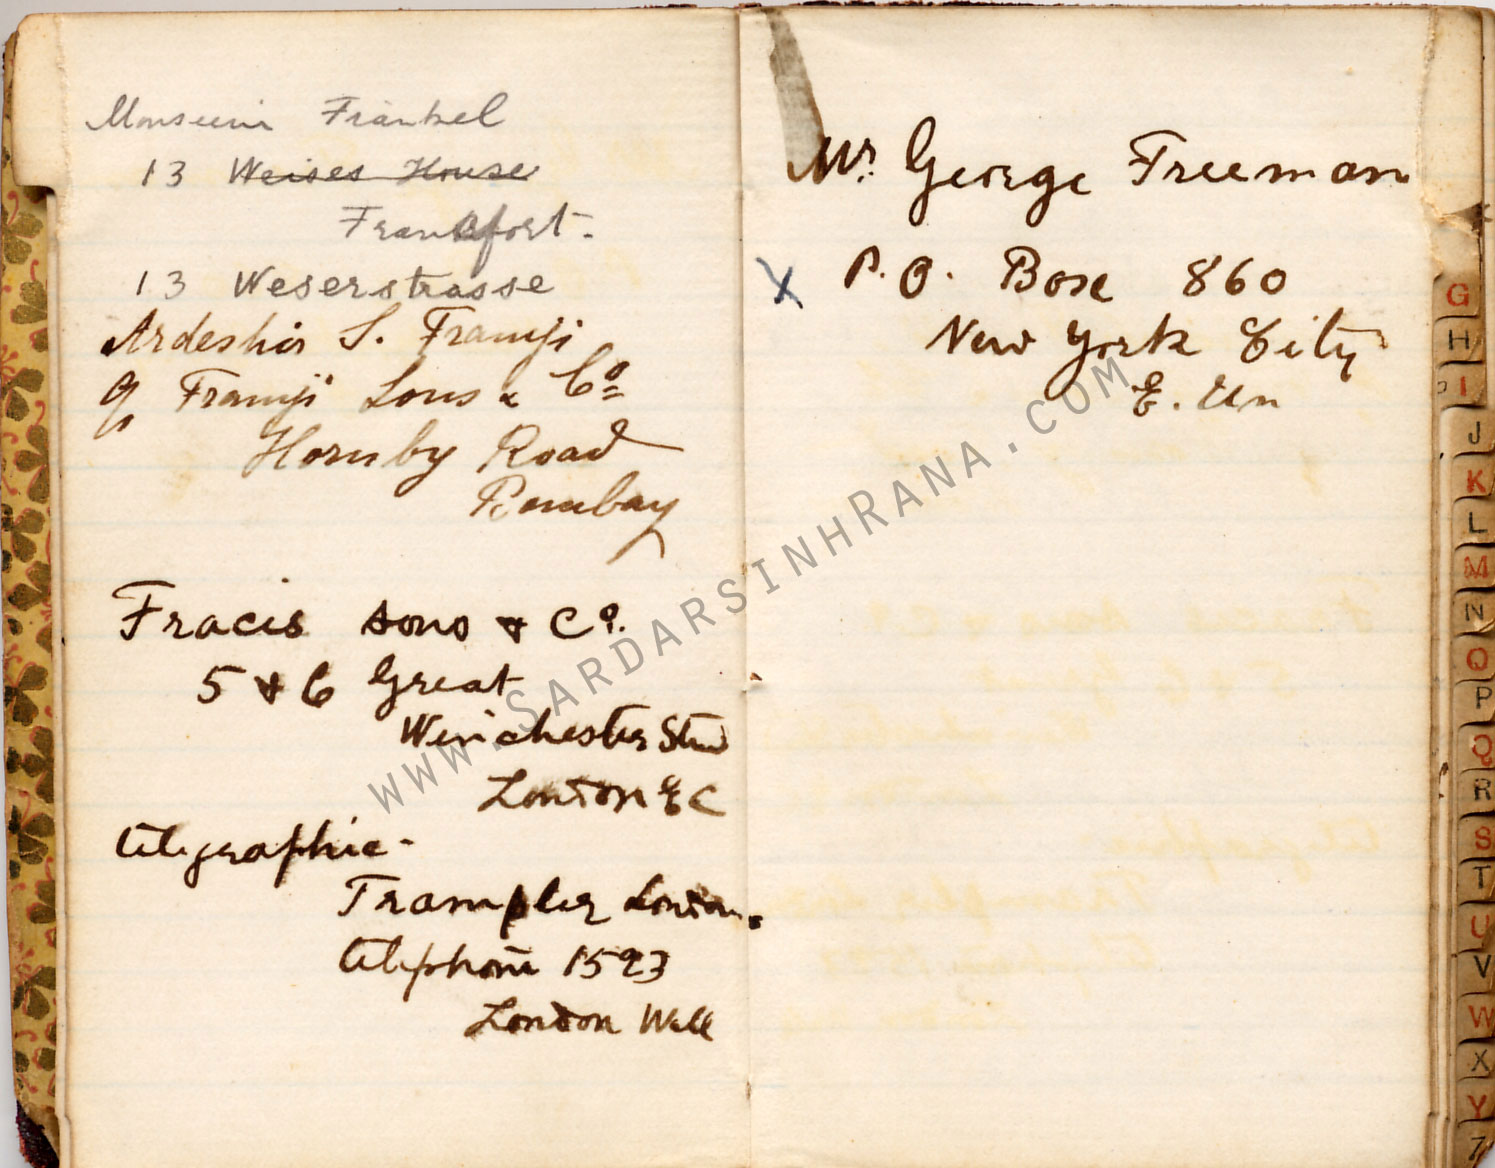 Monsieur Frankel
13 Weises House
Frankfort.
13 Weserstrasse
Ardeshir S. Framji
of Framji Sons & Co
Hornby Road
Bombay
Fracis sons & Co.
5 & 6 Great
Winchester
London E C
telegraphic -
Trampler London.
telephone 1593
London Wall
Mr. George Freeman
X P. O. Box 860
New York City
WWW.SARDARSINHRANA.COM
G
H
I
J
K
L
M
N
O
P
Q
R
S
T
U
V
W
X
Y
Z